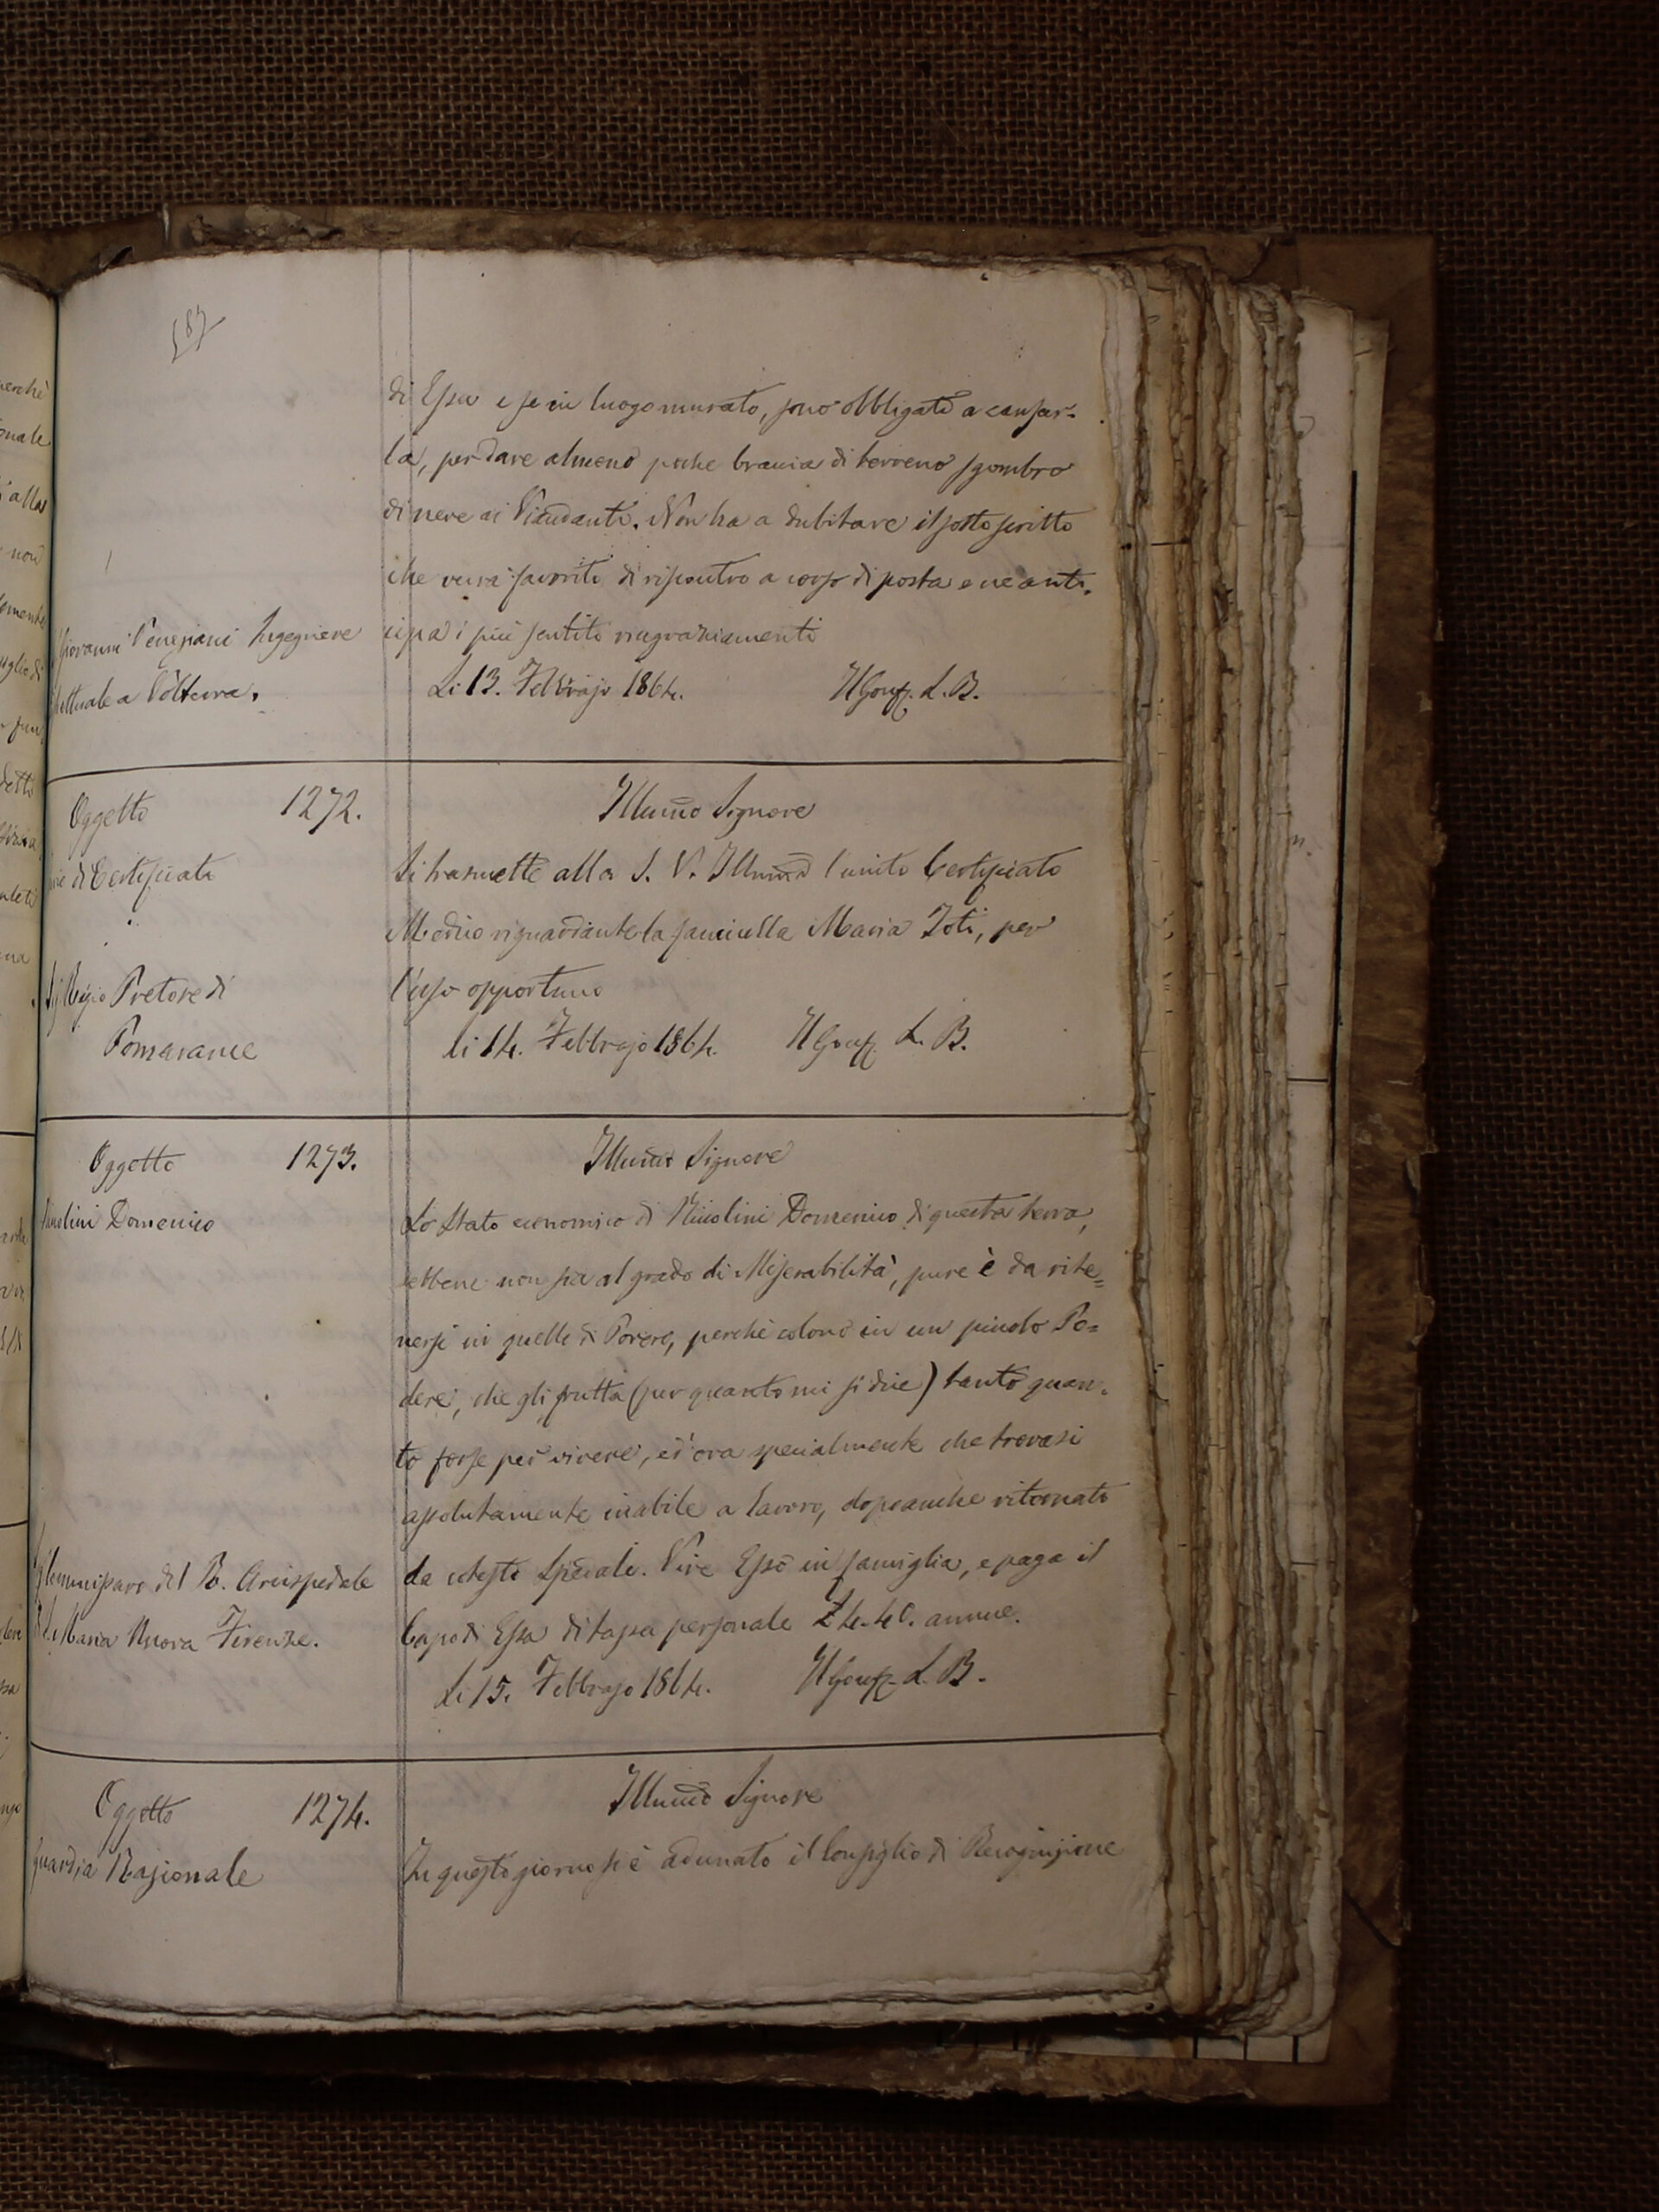 187
di Essa e se in luogo murato, sono obbligati a cansar-
la, per dare almeno poche braccia di terreno sgombro
di neve ai Viandanti. Non ha a dubitare il sottoscritto
che verrà favorito di riscontro a corso di posta e ne anti-
Giovanni Veneziani Ingegnere
cipa i più sentiti ringraziamenti
a Volterra.
Li 13. Febbrajo 1864. Il Gonf. L. B.
Oggetto 1272.
Illumo Signore
di Certificato
Si trasmette alla S. V. Illuma l'unito Certificato
Medico riguardante la fanciulla Maria Toti, per
Regio Pretore di
l'uso opportuno
Pomarance
li 14. Febbrajo 1864. Il Gonf. L. B.
Oggetto 1273.
Illumo Signore
Domenico
Lo Stato economico di Niccolini Domenico di questa terra,
sebbene non sia al grado di Miserabilità, pure è da rite=
nersi in quello di Povero, perchè colono in un piccolo Po=
dere, che gli frutta (per quanto mi si dice) tanto quan-
to forse per vivere, ed ora specialmente che trovasi
assolutamente inabile a lavoro, dopo anche ritornato
del R. Arcispedale
da cotesto Spedale. Vive Esso in famiglia, e paga il
Maria Nuova Firenze.
Capo di Essa di tassa personale £ 4. 40. annue.
Li 15. Febbrajo 1864. Il Gonf. L. B.
Oggetto 1274.
Illumo Signore
Guardia Nazionale
In questo giorno si è adunato il Consiglio di Recognizione